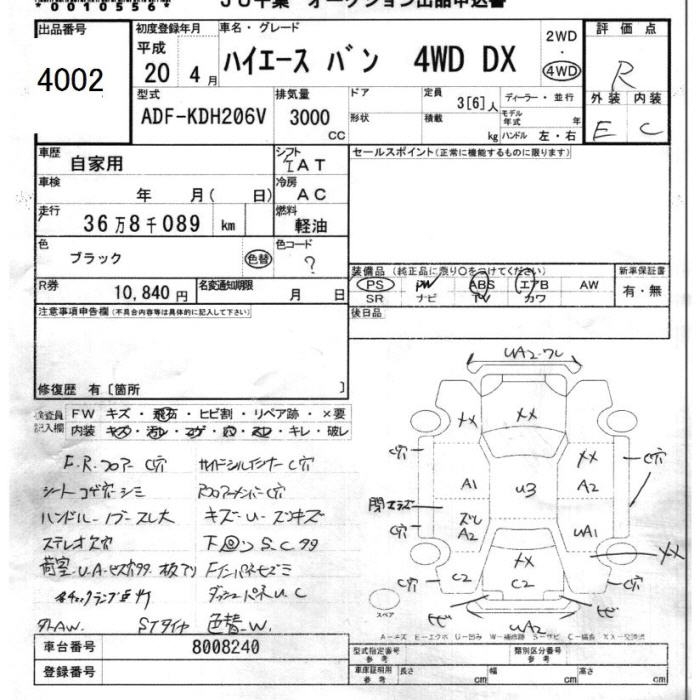 オークション出品申込書
出品番号 初度登録年月 車名・グレード 2WD 評価点
4002 平成 20年 4月 ハイエース バン 4WD DX ・ 4WD R
型式 排気量 ドア 定員 ディーラー・並行 外装 内装
ADF-KDH206V 3000 CC 形状 3[6]人 積載 kg モデル年式 年 ハンドル 左・右 E C
車歴 自家用 シフト IAT セールスポイント(正常に機能するものに限ります)
車検 年 月( 日) 冷房 AC
走行 36万8千089 km 燃料 軽油
色 ブラック 色替 色コード ?
装備品(純正品に限り○をつけてください) 新車保証書
PS PW ABS エアB AW 有・無
SR ナビ TV カワ
R券 10,840円 名変通知期限 月 日
後日品
注意事項申告欄(不具合内容等は具体的に記入して下さい)
修復歴 有〔箇所 〕
検査員記入欄 FW キズ・飛石・ヒビ割・リペア跡・×要
内装 キズ・汚れ・コゲ・穴・スレ・キレ・破レ
F.R.フロアー C穴 サイドシルインナーC穴
シートコゲ穴シミ
ハンドル・ノブ・スレ大 キズ・U・スリキズ
ステレオ欠穴 下回りS.C.99
荷室.U.A.ビス穴99.板アリ
色替.W.
UA2・ワレ
XX XX
C穴 XX C穴
A1 U3 A2
C穴 A2 UA1
XX XX
C穴 C2 C2 C穴
ヒビ UA2 ヒビ
スペア
A-キズ E-エクボ U-凹み W-補修跡 S-サビ C-腐食 XX-交換済
車台番号 8008240 型式指定番号 参考 類別区分番号 参考
登録番号 車庫証明用 参考 長さ cm 幅 cm 高さ cm